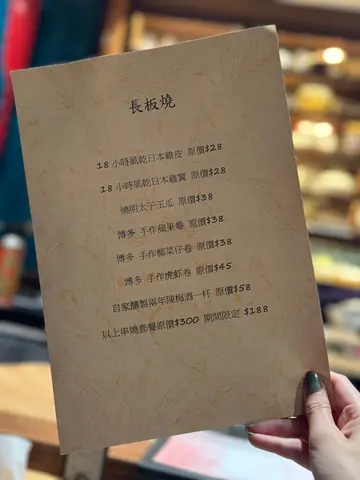 長板燒
18 小時風乾日本雞皮 原價$28
18 小時風乾日本雞翼 原價$28
燒明太子玉瓜 原價$38
博多 手作蘋果卷 原價$38
博多 手作椰菜仔卷 原價$38
博多 手作虎蝦卷 原價$45
自家釀製兩年陳梅酒一杯 原價$58
以上串燒套餐原價$300 期間限定 $188